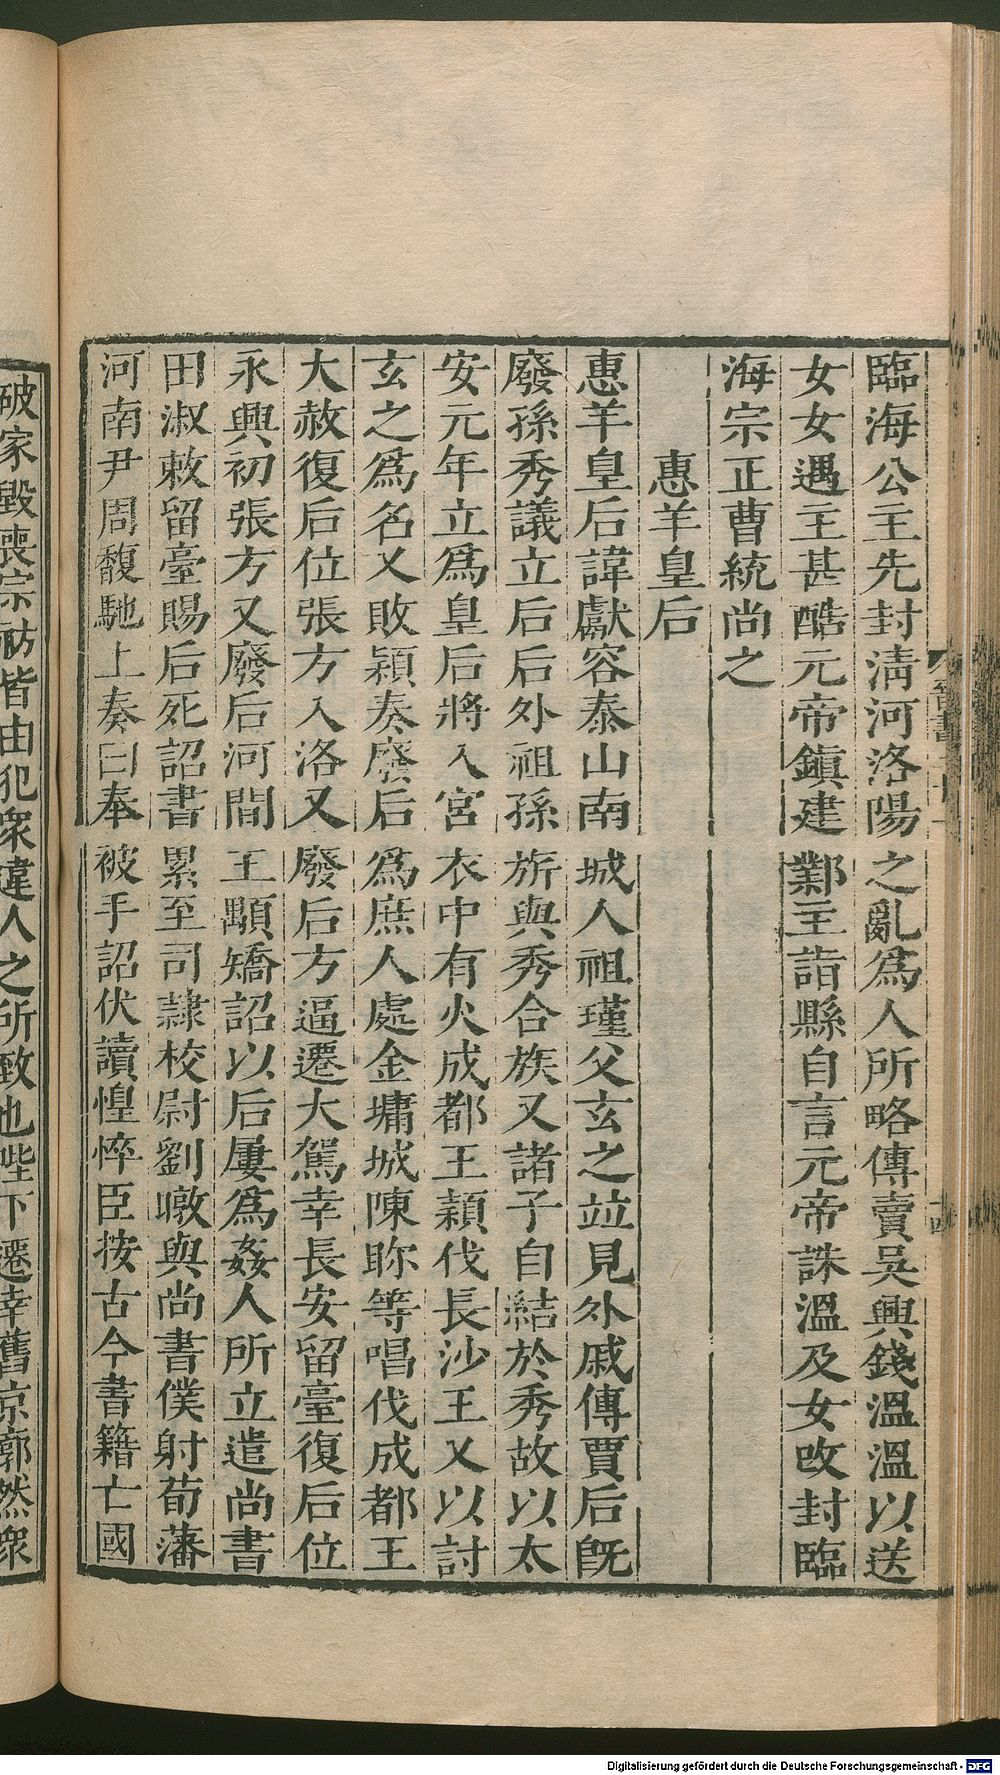 臨海公主先封淸河洛陽之亂爲人所略傳賣吳興錢溫溫以送
女女遇主甚酷元帝鎭建鄴主詣縣自言元帝誅溫及女改封臨
海宗正曹統尚之
惠羊皇后
惠羊皇后諱獻容泰山南城人祖瑾父玄之竝見外戚傳賈后旣
廢孫秀議立后后外祖孫旂與秀合族又諸子自結於秀故以太
安元年立爲皇后將入宮衣中有火成都王穎伐長沙王乂以討
玄之爲名乂敗穎奏廢后爲庶人處金墉城陳眕等唱伐成都王
大赦復后位張方入洛又廢后方逼遷大駕幸長安留臺復后位
永興初張方又廢后河間王顒矯詔以后屢爲姦人所立遣尚書
田淑敕留臺賜后死詔書累至司隷校尉劉暾與尚書僕射荀藩
河南尹周馥馳上奏曰奉被手詔伏讀惶悴臣按古今書籍亡國
破家毀喪宗祊皆由犯衆違人之所致也陛下遷幸舊京廓然衆
Digitalisierung gefördert durch die Deutsche Forschungsgemeinschaft - DFG